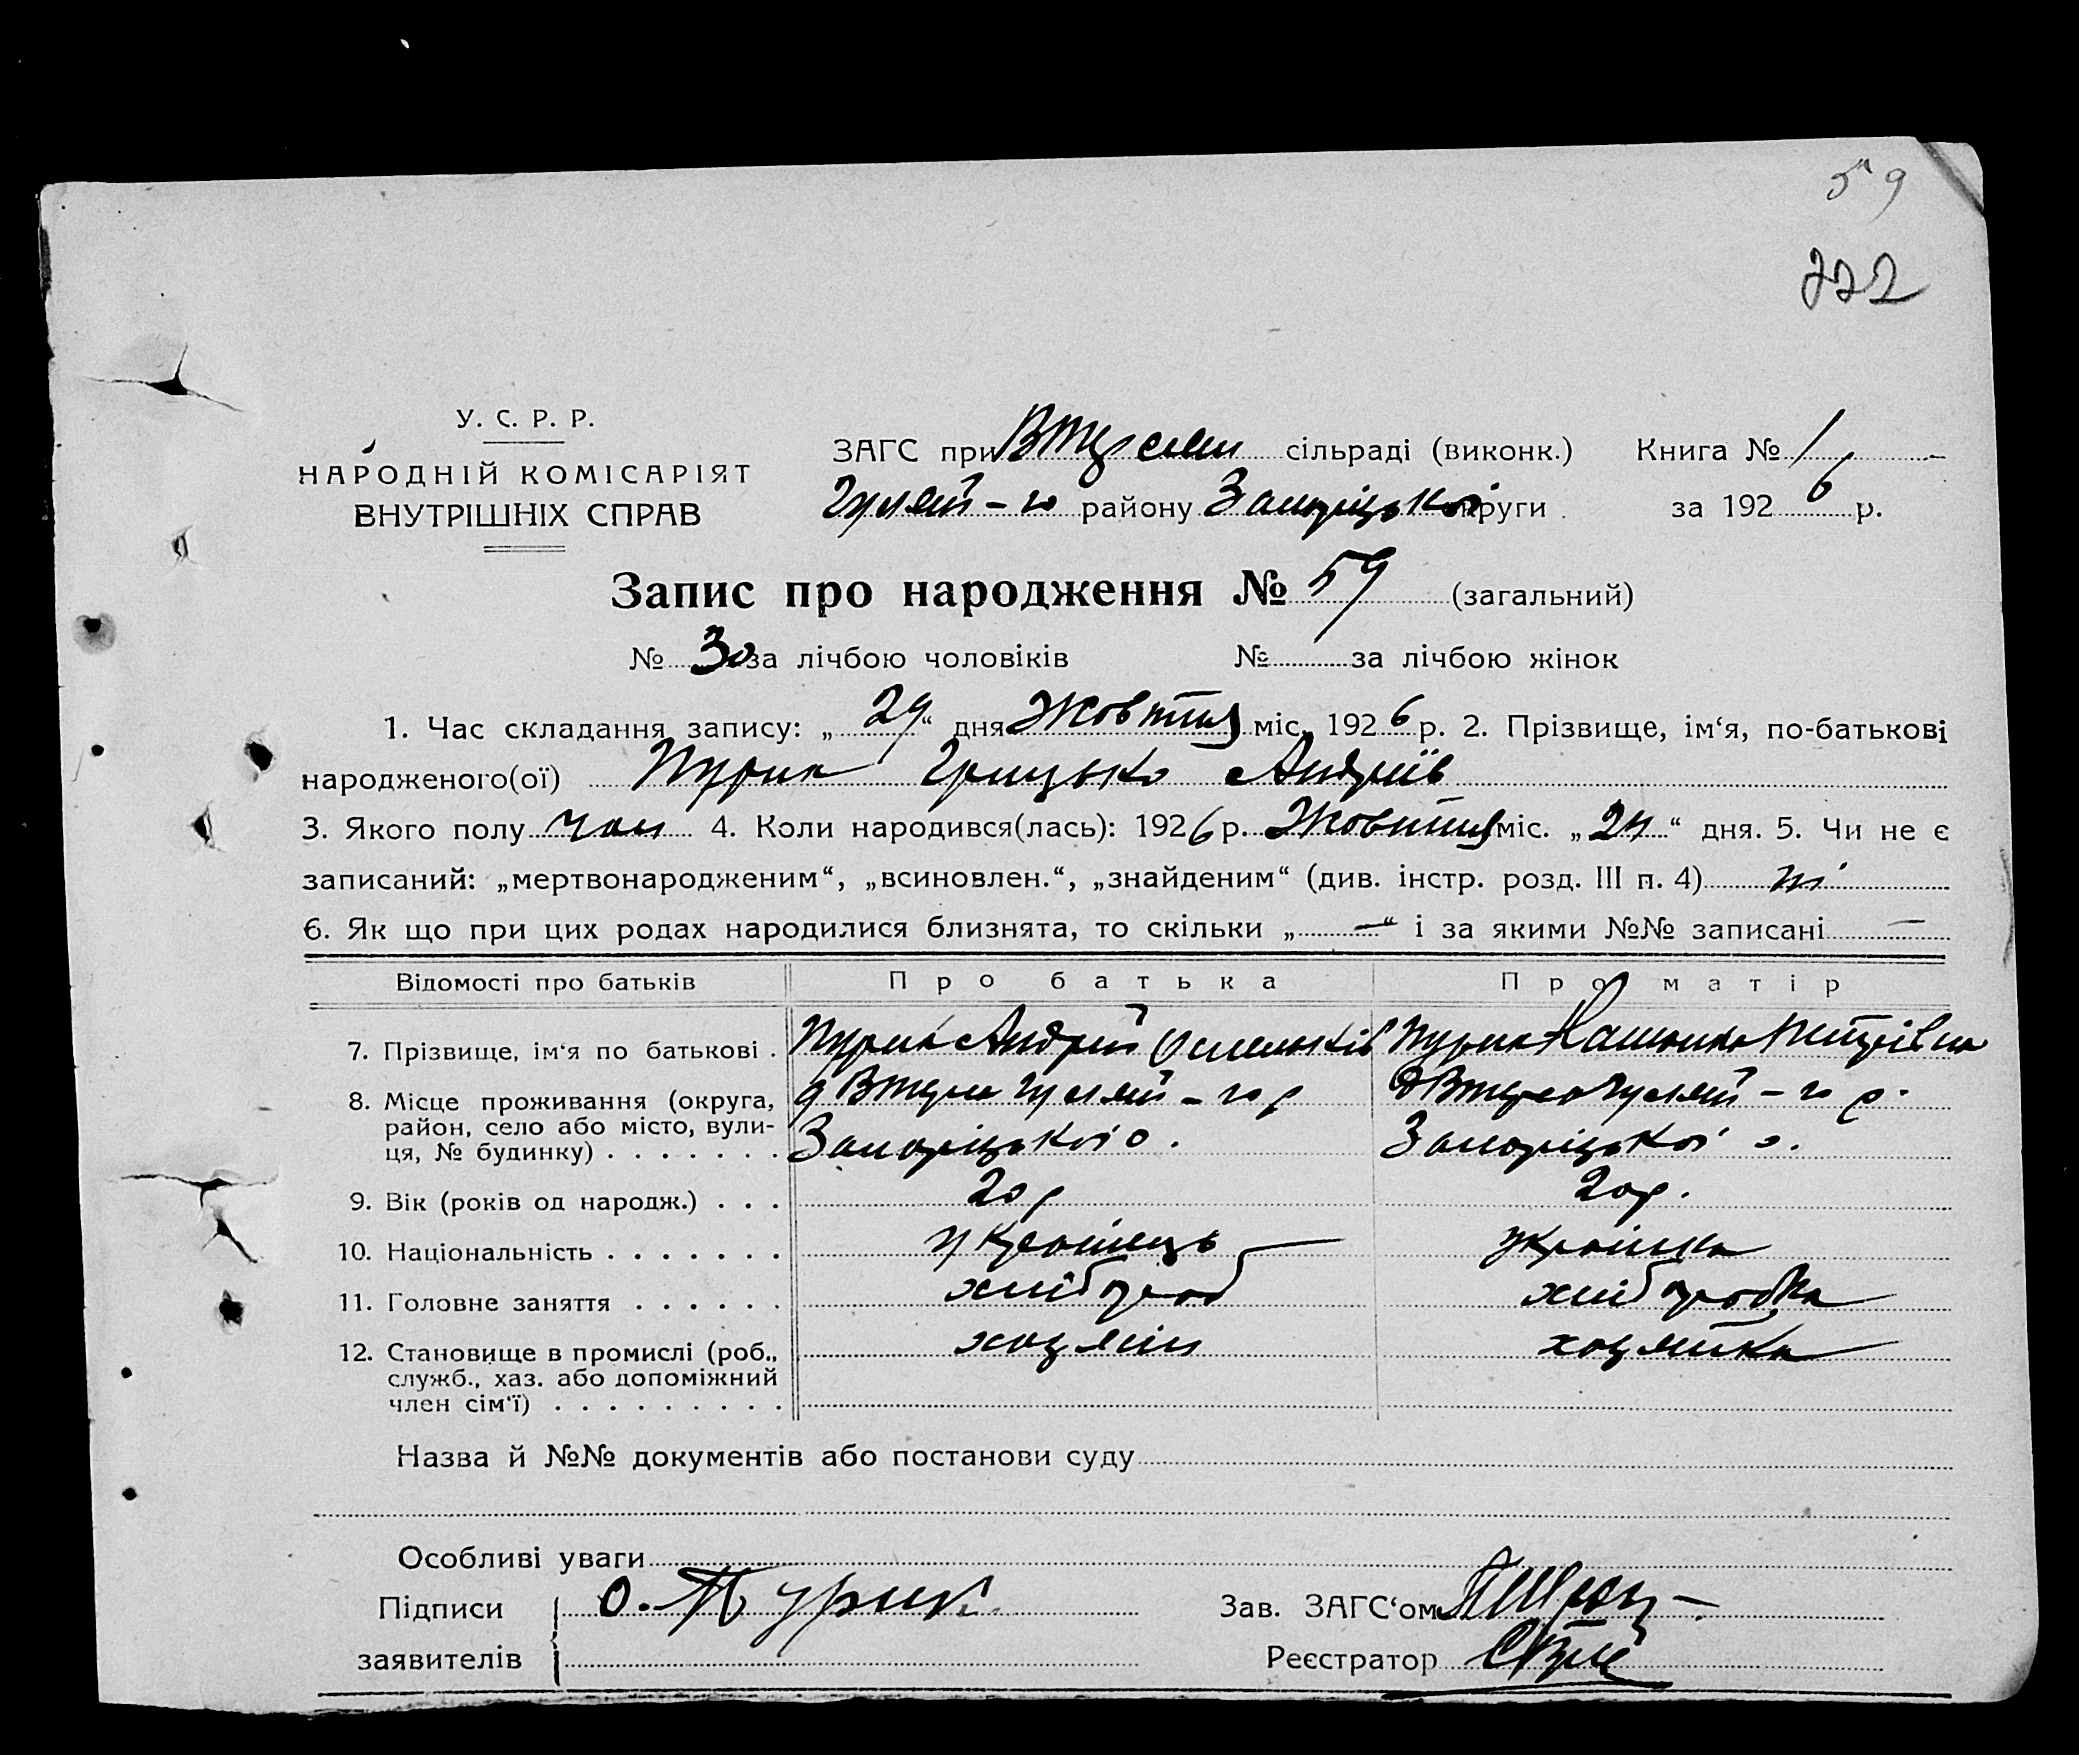 59
222
У. С. Р. Р.
НАРОДНІЙ КОМІСАРІЯТ
ВНУТРІШНІХ СПРАВ
ЗАГС при сільраді (виконк.) Книга № 1
Гуляй-го району Запоріцької округи за 1926 р.
Запис про народження № 59 (загальний)
№ 30 за лічбою чоловіків № за лічбою жінок
1. Час складання запису: „29“ дня Жовтня міс. 1926 р. 2. Прізвище, ім‘я, по-батькові
народженого(ої) Пурик Грицько Андріїв
3. Якого полу чол 4. Коли народився(лась): 1926 р. Жовтня міс. „24“ дня. 5. Чи не є
записаний: „мертвонародженим“, „всиновлен.“, „знайденим“ (див. інстр. розд. III п. 4) ні
6. Як що при цих родах народилися близнята, то скільки „—“ і за якими №№ записані —
Відомості про батьків Про батька Про матір
7. Прізвище, ім‘я по батькові . Пурик Андрій Пурик Петрівна
8. Місце проживання (округа, Гуляй-го р Гуляй-го р.
район, село або місто, вули-
ця, № будинку) . . . . . . . Запоріцької о. Запоріцької о.
9. Вік (років од народж.) . . . 20 р 20 р.
10. Національність . . . . . . . українець українка
11. Головне заняття . . . . . . хлібороб хліборобка
12. Становище в промислі (роб., хазяїн хазяйка
служб., хаз. або допоміжний
член сім‘ї) . . . . . . . . .
Назва й №№ документів або постанови суду
Особливі уваги
Підписи О. Пурик Зав. ЗАГС‘ом
заявителів Реєстратор